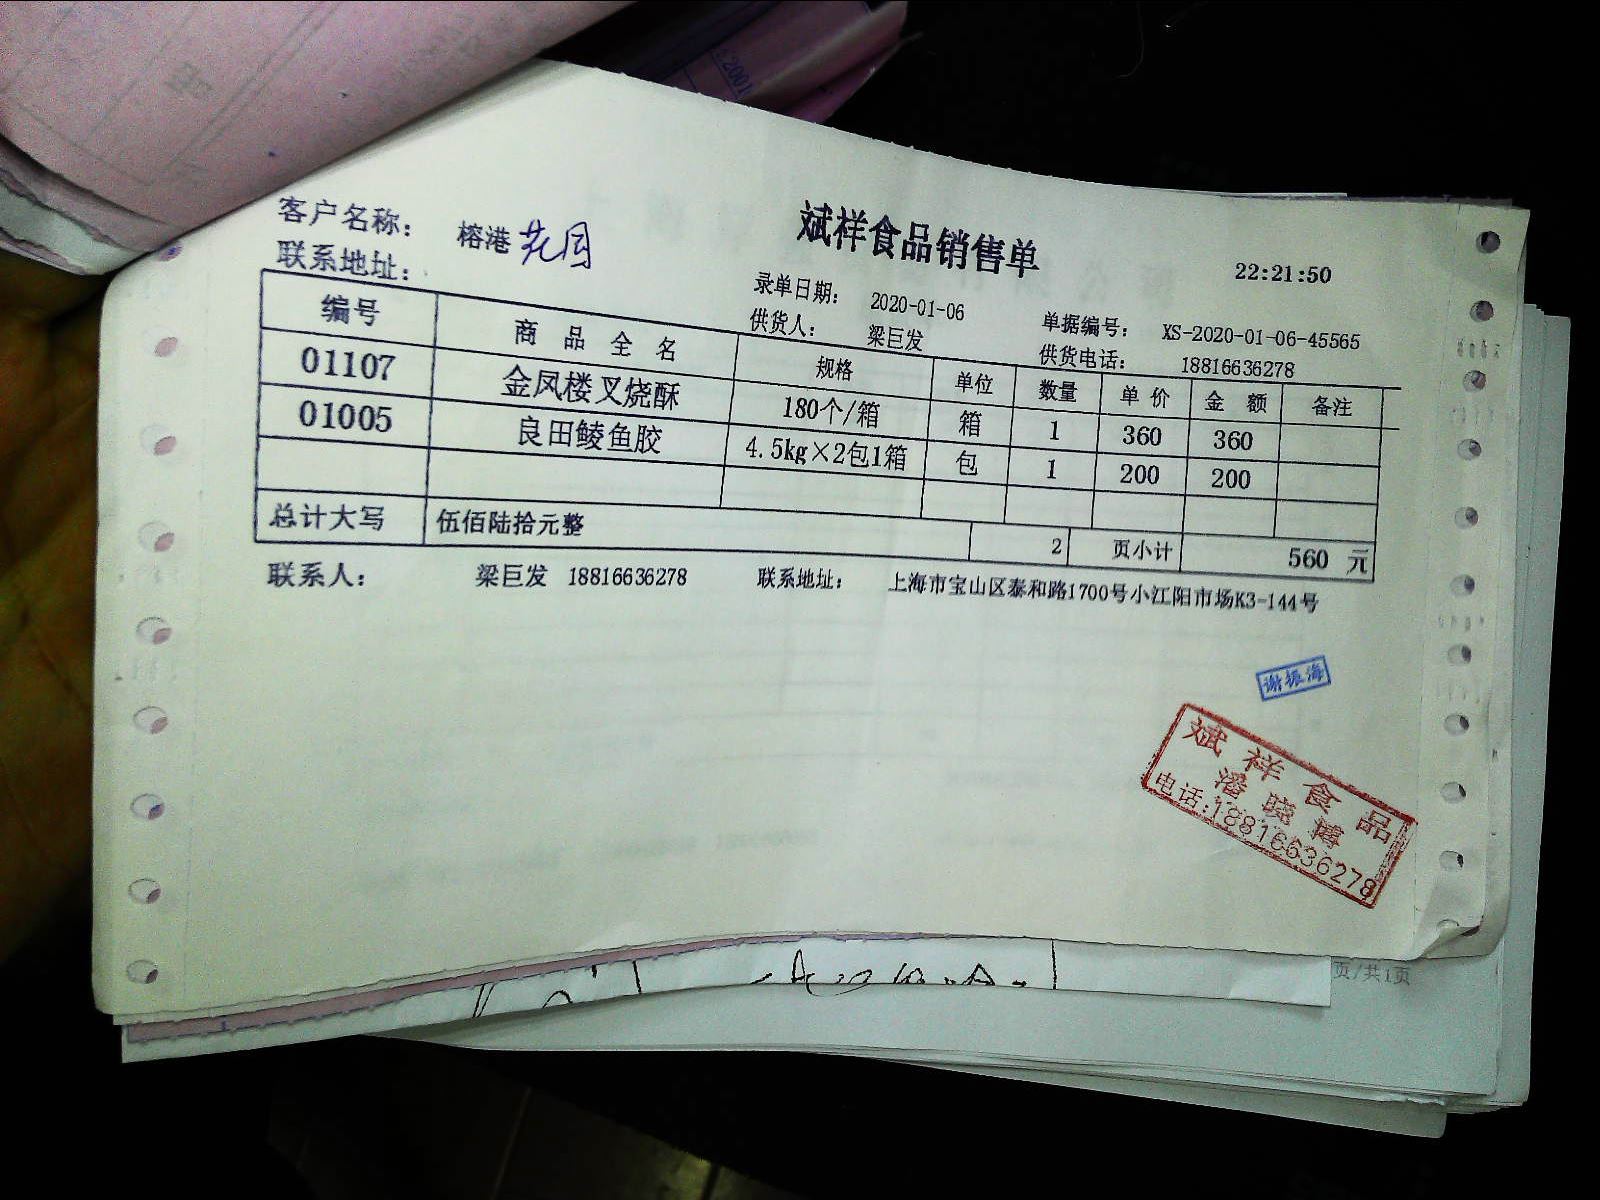 斌祥食品销售单
22:21:50
客户名称： 榕港 花园
联系地址：
录单日期： 2020-01-06 单据编号： XS-2020-01-06-45565
供货人： 梁巨发 供货电话： 18816636278
编号 商品全名 规格 单位 数量 单价 金额 备注
01107 金凤楼叉烧酥 180个/箱 箱 1 360 360
01005 良田鲮鱼胶 4.5kg×2包1箱 包 1 200 200
总计大写 伍佰陆拾元整 2 页小计 560 元
联系人： 梁巨发 18816636278 联系地址： 上海市宝山区泰和路1700号小江阳市场K3-144号
谢振海
斌祥食品
潘晓博
电话:18816636278
页/共1页